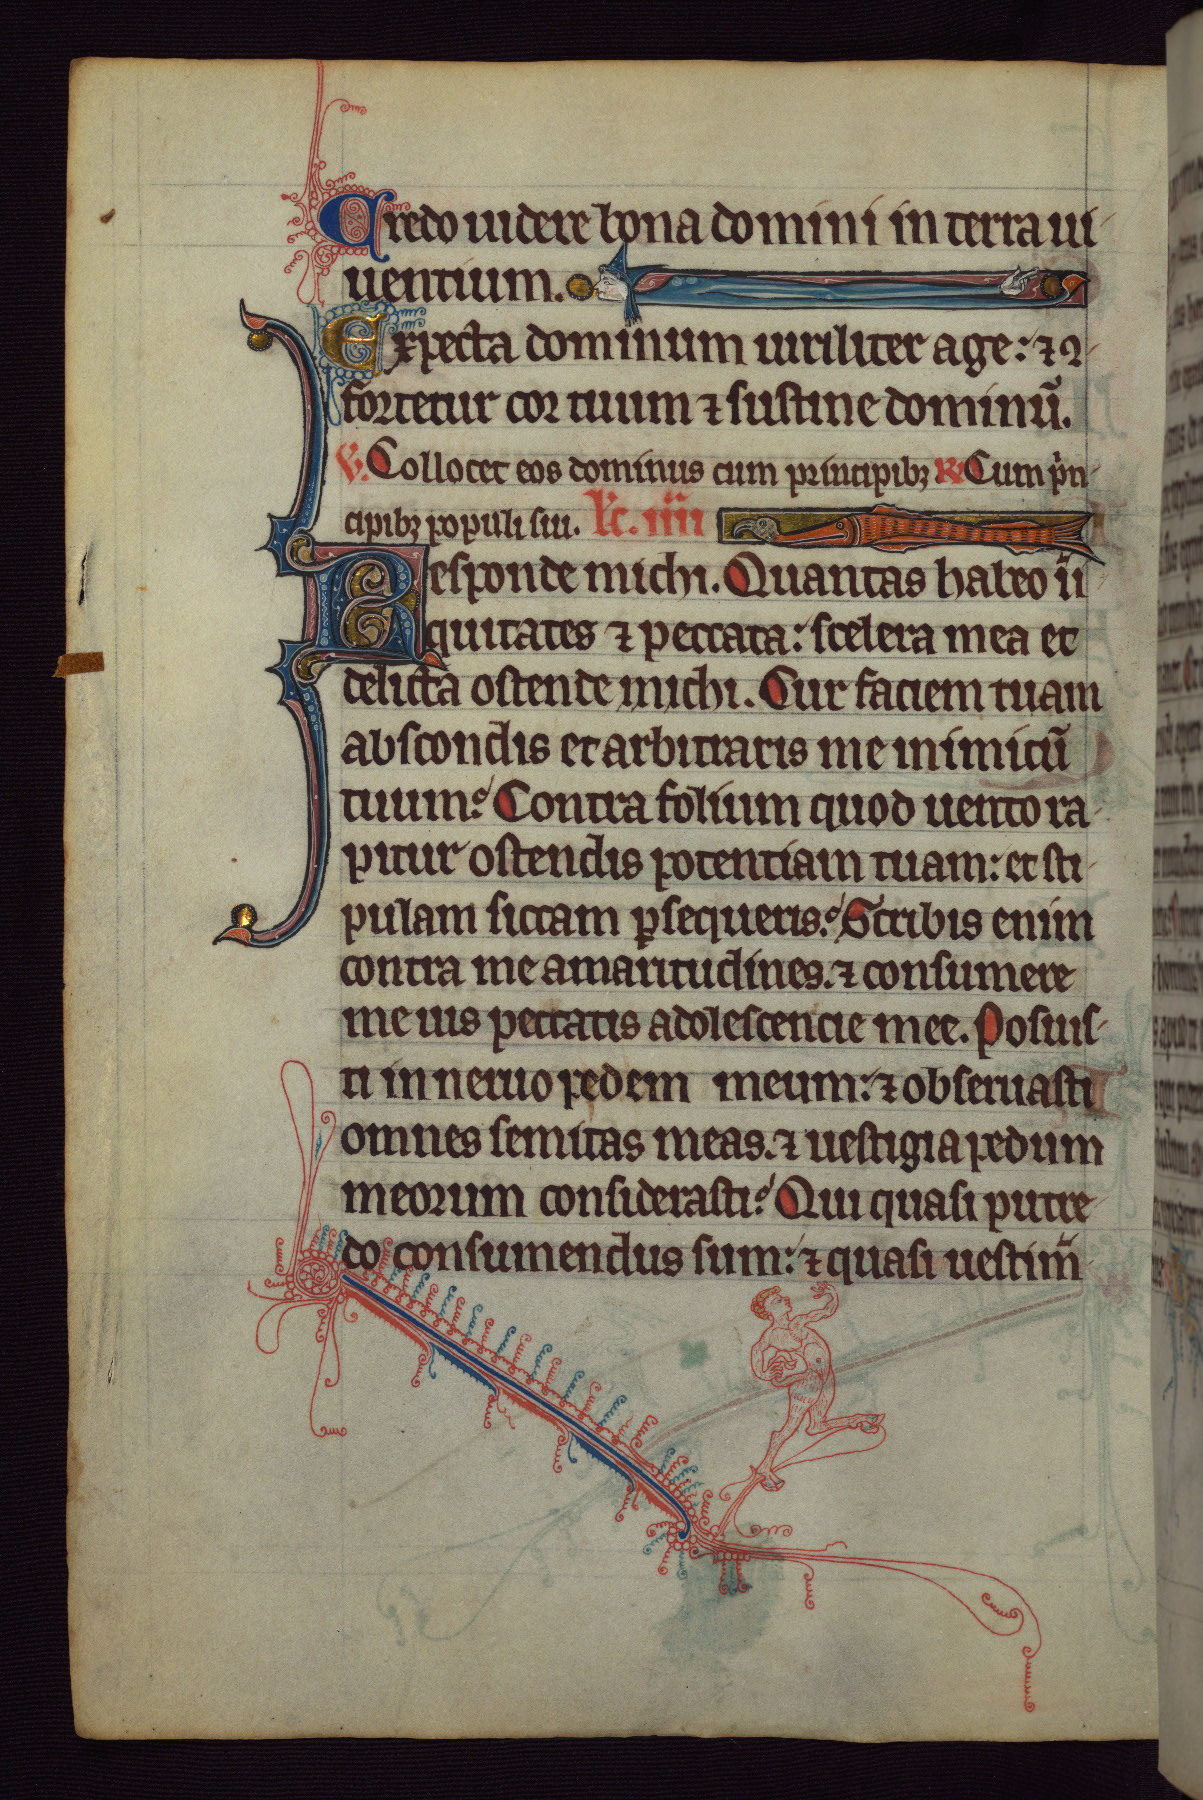 Credo uidere bona domini in terra ui
uentium.
Expecta dominum uiriliter age: ⁊ ꝯ
fortetur cor tuum ⁊ sustine dominũ.
℣. Collocet eos dominus cum principibꝫ ℟ Cum p̍n
cipibꝫ populi sui. Lc̄. iiii
Responde michi. Quantas habeo īi
quitates ⁊ peccata: scelera mea et
delicta ostende michi. Cur faciem tuam
abscondis et arbitraris me inimicũ
tuum? Contra folium quod uento ra
pitur ostendis potentiam tuam: et sti
pulam siccam ꝑsequeris? Scribis enim
contra me amaritudines. ⁊ consumere
me uis peccatis adolescencie mee. Posuis
ti in neruo pedem meum: ⁊ obseruasti
omnes semitas meas. ⁊ uestigia pedum
meorum considerasti? Qui quasi putre
do consumendus sum: ⁊ quasi uestim̄